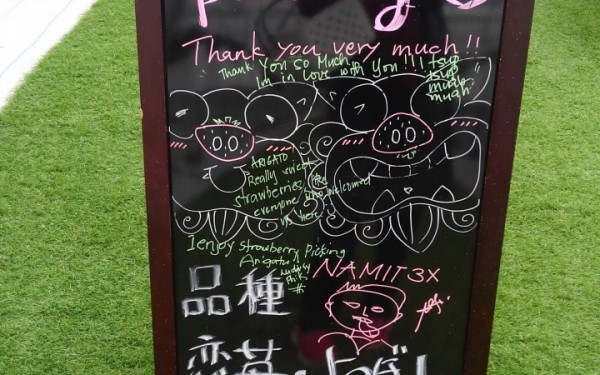 Thank you very much!!
"Thank You So Much
Im in Love with You!!! tsup
tsup
muah
muah"
ARIGATO
Really sweet
strawberries
everyone who welcomed
us here
I enjoy strawberry Picking
Arigatu
NAMIT 3X
品種
恋苺